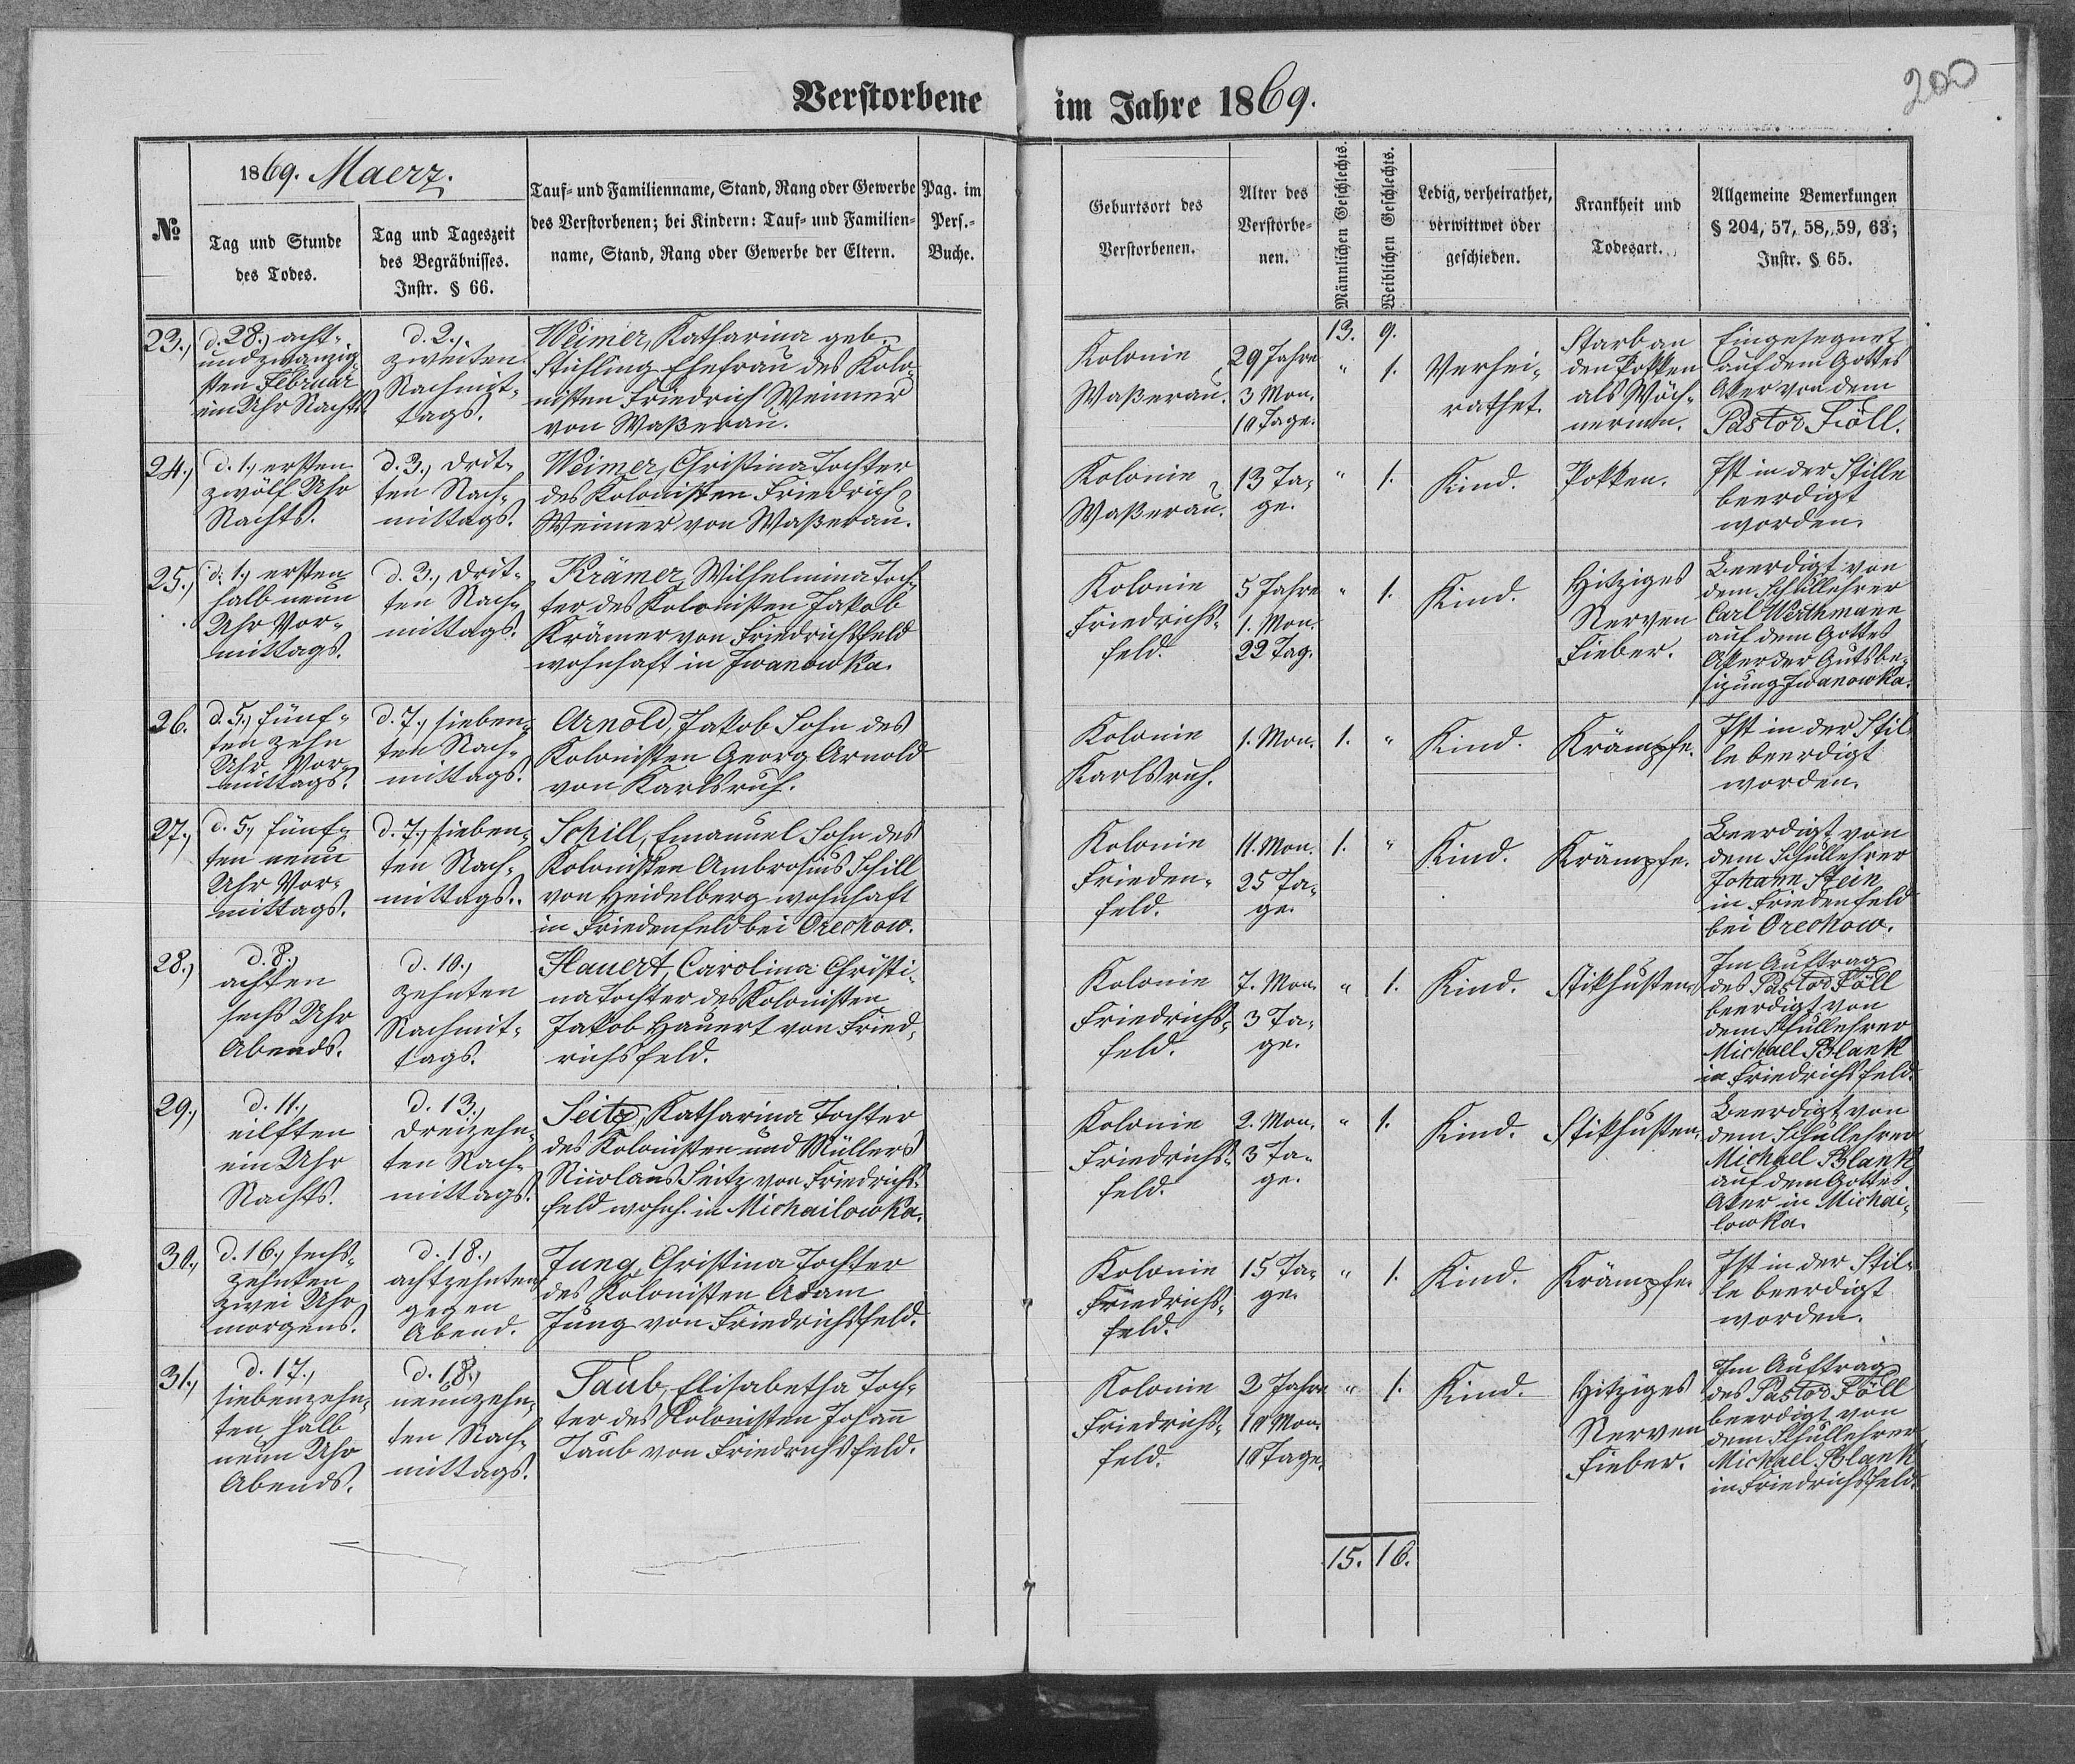 Verstorbene im Jahre 1869.
200
№
1869. Maerz.
Tag und Stunde
des Todes.
Tag und Tageszeit
des Begräbnisses.
Instr. § 66.
Tauf- und Familienname, Stand, Rang oder Gewerbe
des Verstorbenen; bei Kindern: Tauf- und Familien-
name, Stand, Rang oder Gewerbe der Eltern.
Pag. im
Pers.-
Buche.
Geburtsort des
Verstorbenen.
Alter des
Verstorbe-
nen.
Männlichen Geschlechts.
Weiblichen Geschlechts.
Ledig, verheirathet,
verwittwet oder
geschieden.
Krankheit und
Todesart.
Allgemeine Bemerkungen
§ 204, 57, 58, 59, 63;
Instr. § 65.
13. 9.
23.,
d. 28., acht-
undzwanzig-
sten Februar
ein Uhr Nachts
d. 2.,
zweiten
Nachmit-
tags.
Weimer, Katharina geb.
Stühling Ehefrau des Kolo-
nisten Friedrich Weimer
von Waßerau.
Kolonie
Waßerau.
29 Jahre
3 Mon.
10 Tage.
"
1.
Verhei-
rathet.
Starb an
den Pokken
als Wöch-
nerinn.
Eingesegnet
auf dem Gottes
Aker von dem
Pastor Föll.
24.,
d. 1., ersten
zwölf Uhr
Nachts.
d. 3., drit-
ten Nach-
mittags.
Weimer, Christina Tochter
des Kolonisten Friedrich
Weimer von Waßerau.
Kolonie
Waßerau.
13 Ta-
ge.
"
1.
Kind.
Pokken.
Ist in der Stille
beerdigt
worden.
25.,
d. 1., ersten
halb neun
Uhr Vor-
mittags.
d. 3., drit-
ten Nach-
mittags.
Krämer, Wilhelmina Toch-
ter des Kolonisten Jakob
Krämer von Friedrichsfeld
wohnhaft in Iwanowka.
Kolonie
Friedrichs-
feld.
5 Jahre
1. Mon.
22 Tag.
"
1.
Kind.
Hitziges
Nerven
Fieber.
Beerdigt von
dem Schullehrer
Carl Werthmann
auf dem Gottes
Aker der Gutsbe-
sizung Iwanowka.
26.
d. 5., fünf-
ten zehn
Uhr Vor-
mittags.
d. 7., sieben-
ten Nach-
mittags.
Arnold, Jakob Sohn des
Kolonisten Georg Arnold
von Karlsruh.
Kolonie
Karlsruh.
1. Mon.
1.
"
Kind.
Krämpfe.
Ist in der Stil-
le beerdigt
worden.
27.,
d. 5., fünf-
ten neun
Uhr Vor-
mittags.
d. 7., sieben-
ten Nach-
mittags.
Schill, Emanuel Sohn des
Kolonisten Ambrosius Schill
von Heidelberg wohnhaft
in Friedenfeld bei Orechow.
Kolonie
Frieden-
feld.
11. Mon.
25 Ta-
ge.
1.
"
Kind.
Krämpfe.
Beerdigt von
dem Schullehrer
Johann Stein
in Friedenfeld
bei Orechow.
28.,
d. 8.,
achten
sechs Uhr
Abends.
d. 10.,
zehnten
Nachmit-
tags.
Hauert, Carolina Christi-
na Tochter des Kolonisten
Jakob Hauert von Fried-
richsfeld.
Kolonie
Friedrichs-
feld.
7. Mon.
3 Ta-
ge.
"
1.
Kind.
Stikhusten.
Im Auftrag
des Pastor Föll
beerdigt von
dem Schullehrer
Michael Blank
in Friedrichsfeld.
29.,
d. 11.,
eilften
ein Uhr
Nachts.
d. 13.,
dreizehn-
ten Nach-
mittags.
Seitz, Katharina Tochter
des Kolonisten und Müllers
Nicolaus Seitz von Friedrichs-
feld wohnh. in Michailowka.
Kolonie
Friedrichs-
feld.
2. Mon.
3 Ta-
ge.
"
1.
Kind.
Stikhusten.
Beerdigt von
dem Schullehrer
Michael Blank
auf dem Gottes
Aker in Michai-
lowka.
30.,
d. 16., sechs-
zehnten
zwei Uhr
morgens.
d. 18.,
achtzehnten
gegen
Abend.
Jung, Christina Tochter
des Kolonisten Adam
Jung von Friedrichsfeld.
Kolonie
Friedrichs-
feld.
15 Ta-
ge.
"
1.
Kind.
Krämpfe.
Ist in der Stil-
le beerdigt
worden.
31.,
d. 17.,
siebenzehn-
ten halb
neun Uhr
Abends.
d. 18.,
neunzehn-
ten Nach-
mittags.
Taub, Elisabetha Toch-
ter des Kolonisten Johann
Taub von Friedrichsfeld.
Kolonie
Friedrichs-
feld.
2 Jahre
10 Mon.
10 Tage.
"
1.
Kind.
Hitziges
Nerven
Fieber.
Im Auftrag
des Pastor Föll
beerdigt von
dem Schullehrer
Michael Blank
in Friedrichsfeld.
15. 16.